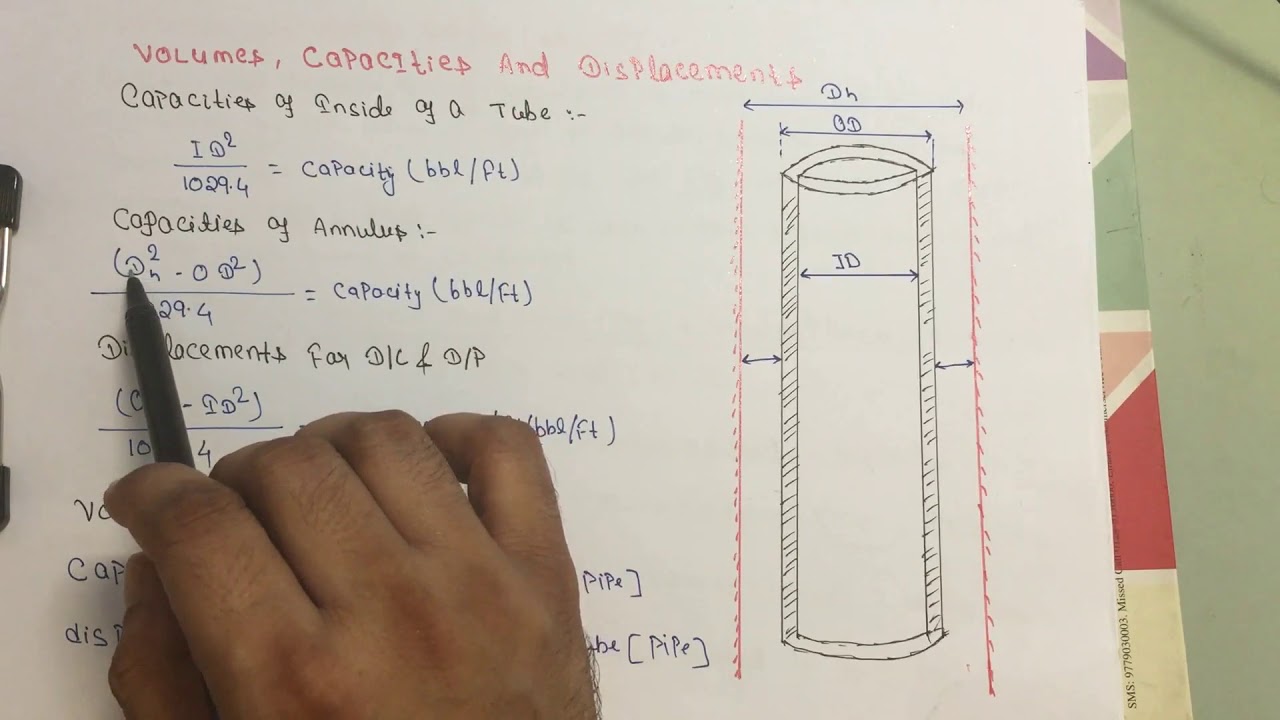 VOLUMES, CAPACITIES AND DISPLACEMENTS
Capacities of Inside of a Tube :-
ID²
1029.4
= Capacity (bbl/ft)
Capacities of Annulus :-
(Dh² - OD²)
29.4
= Capacity (bbl/ft)
For D/C & D/P
- ID²)
10 4
=
(bbl/ft)
Pipe]
[Pipe]
Dh
OD
ID
SMS: 9779030003. Missed